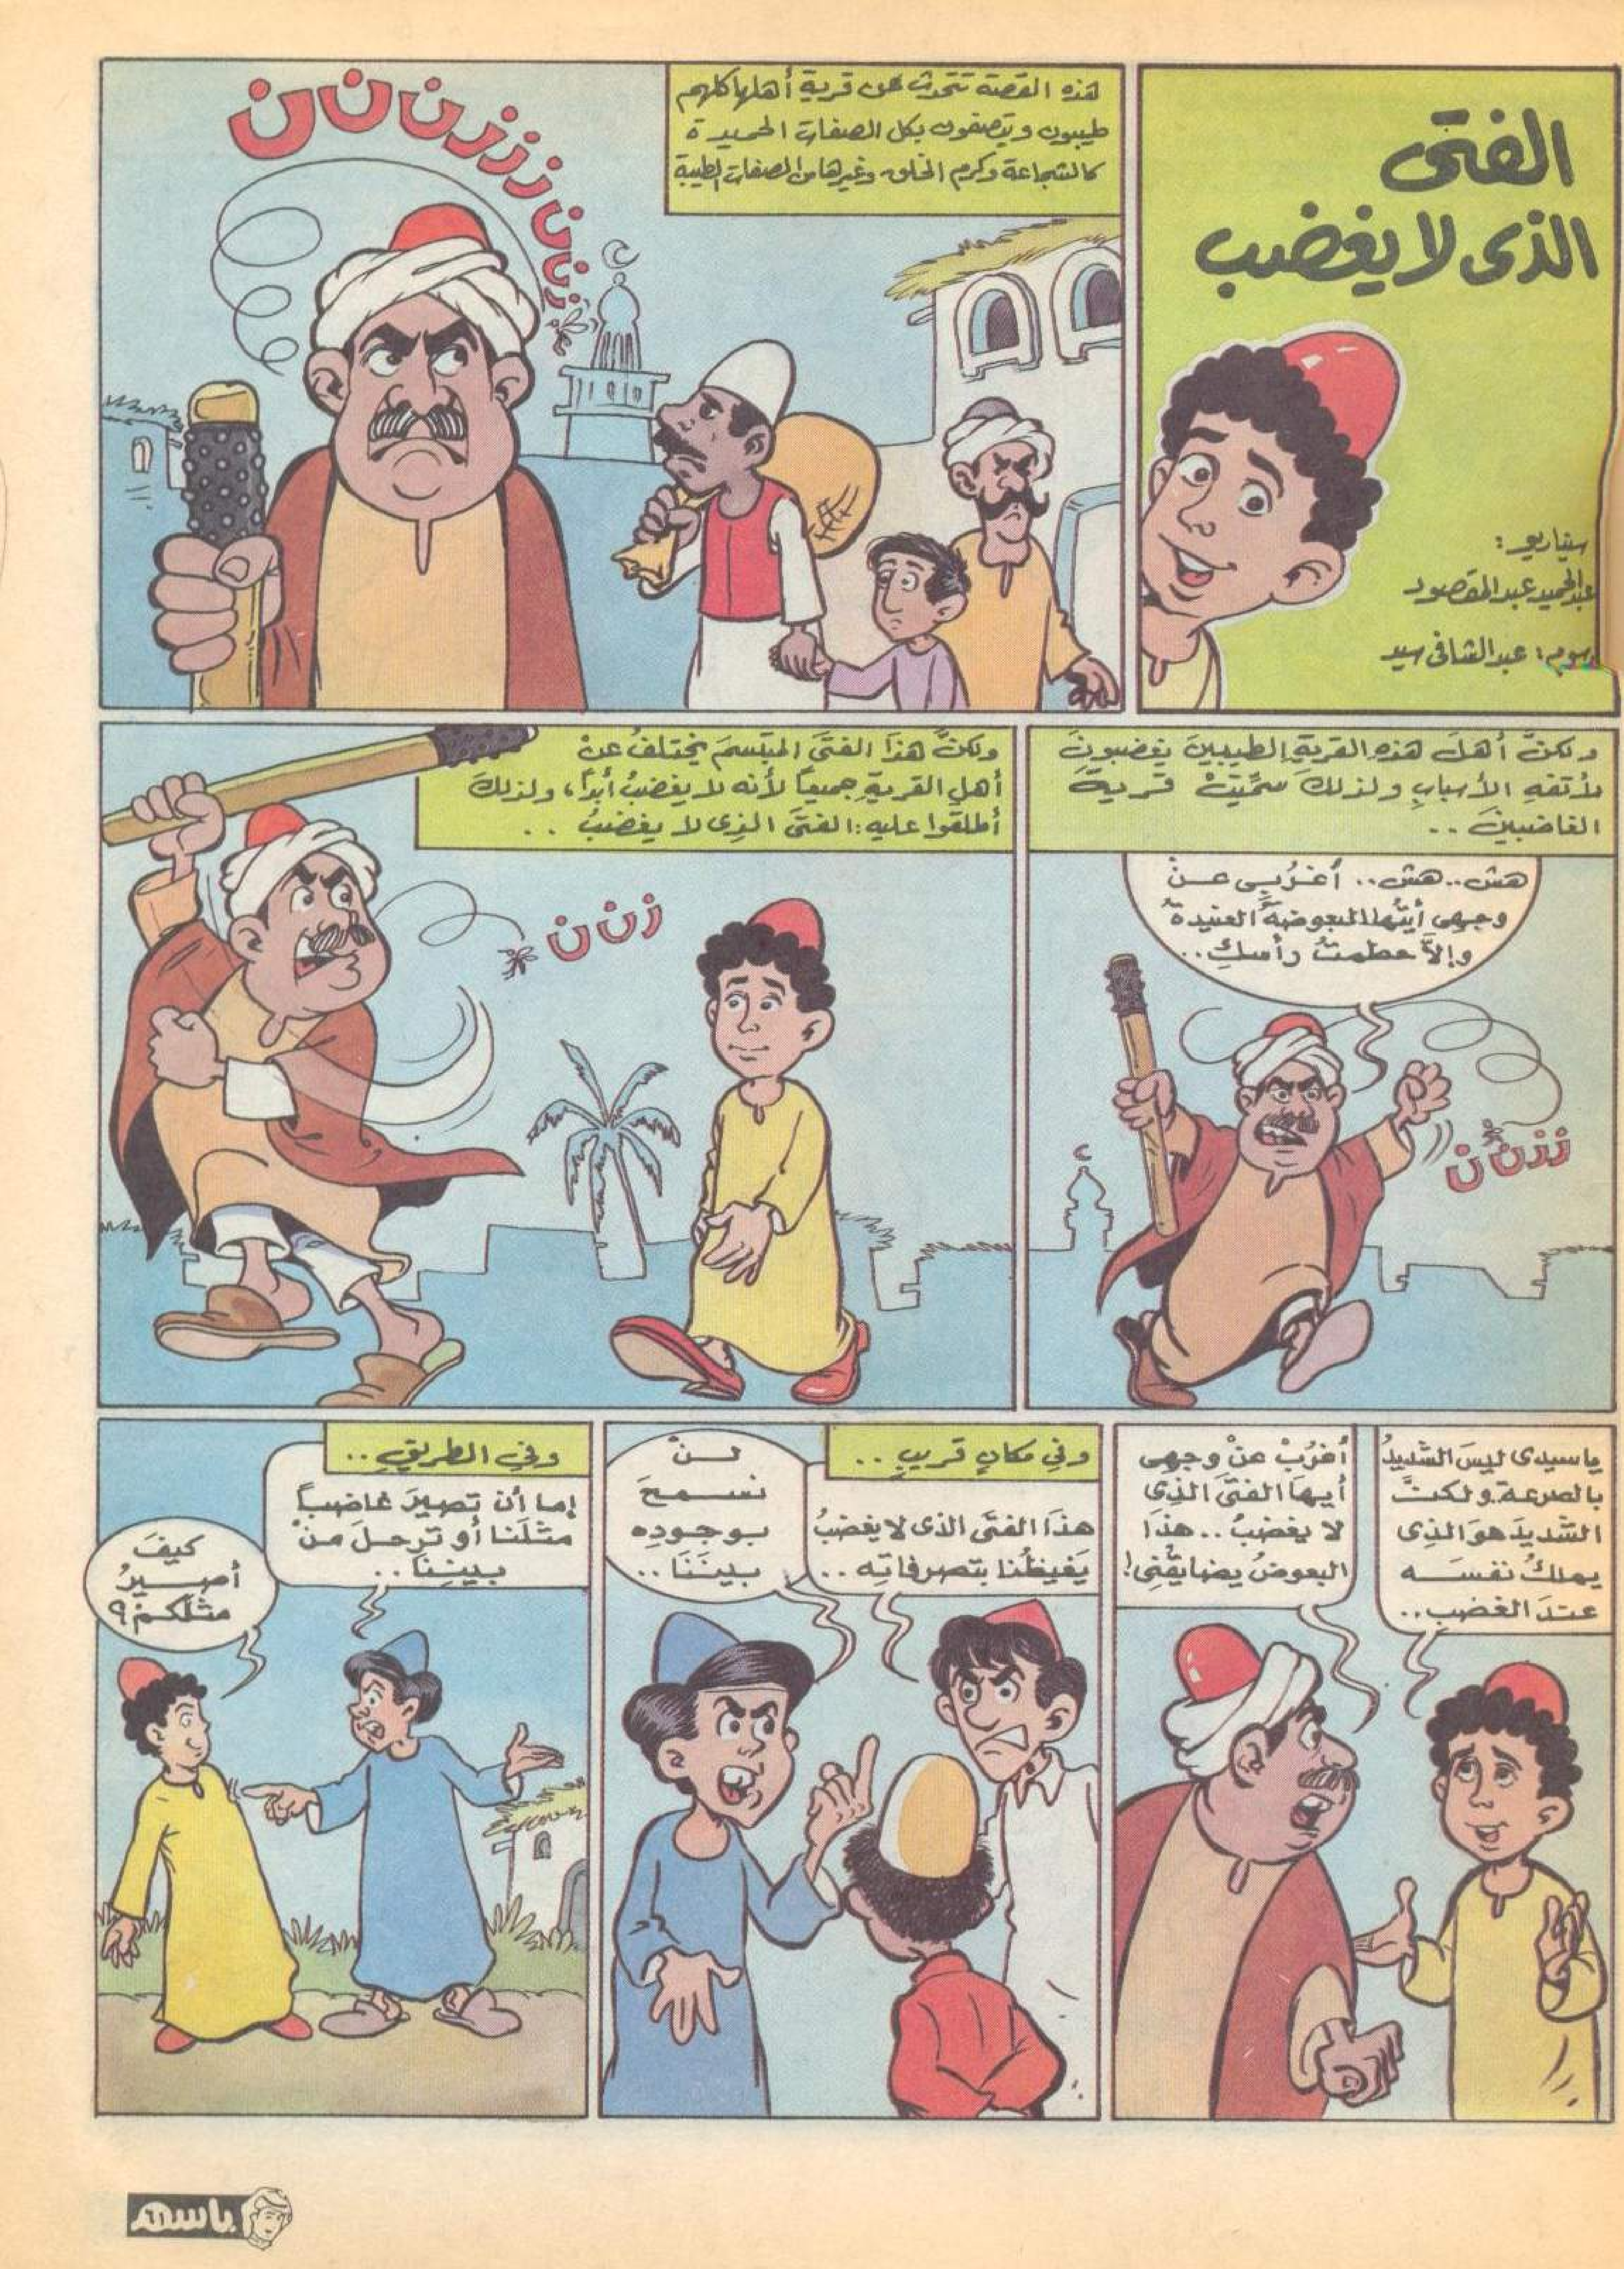 الفتى
الذى لا يغضب
سيناريو:
عبدالحميد عبدالمقصود
رسوم: عبدالشافى سيد
هذه القصة تتحدث عن قرية أهلها كلهم
طيبون ويتصفون بكل الصفات الحميدة
كالشجاعة وكرم الخلق وغيرها من الصفات الطيبة
ز ن ن ز ز ز ن ز ز ن ن ن ن
ولكنَّ أهلَ هذهِ القريةِ الطيبينَ يغضبونَ
لأتفهِ الأسبابِ ولذلكَ سُمِّيَتْ قريةَ
الغاضبينَ ..
هش .. هش .. أغْرُبِى عنْ
وجهى أيتُها البعوضةُ العنيدةُ
وإلاَّ حطمتُ رأسكِ ..
ززن ن ن
ولكنَّ هذَا الفتَى المبتسمَ يختلفُ عنْ
أهلِ القريةِ جميعاً لأنه لا يغضبُ أبداً، ولذلكَ
أطلقوا عليه: الفتَى الذِى لا يغضبُ ..
زن ن ن
ياسيدى ليسَ الشديدُ
بالصرعة ولكنَّ
الشديدَ هوَ الذِى
يملكُ نفسَه
عندَ الغضبِ ..
أغرُبْ عنْ وجهِى
أيهَا الفتَى الذِى
لا يغضبُ .. هذَا
البعوضُ يضايقُنِى!
وفِى مكانٍ قريبٍ ..
هذَا الفتَى الذى لا يغضبُ
يَغيظُنا بتصرفاتِه ..
لنْ
نسمحَ
بوجودِه
بينَنَا ..
وفِى الطريقِ ..
إما أن تصيرَ غاضباً
مثلَنا أو ترحلَ منْ
بيننِا ..
كيفَ
أصيرُ
مثلَكمْ؟
باسم